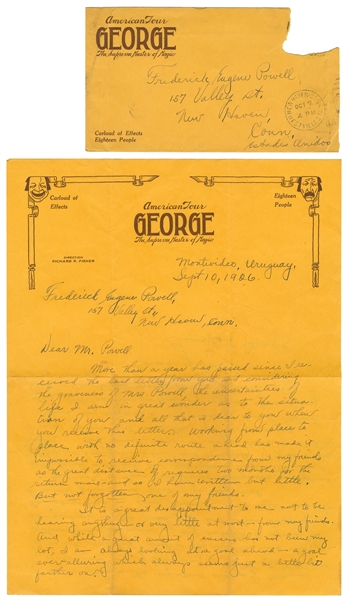 American Tour
GEORGE
The Supreme Master of Magic
Carload of Effects
Eighteen People
Frederick Eugene Powell,
157 Valley St.
New Haven,
Conn.
Estados Unidos
OCT
Carload of
Effects
Eighteen
People
American Tour
GEORGE
The Supreme Master of Magic
DIRECTION
RICHARD R. FISHER
Montevideo, Uruguay,
Sept 10, 1926.
Frederick Eugene Powell,
157 Valley St,
New Haven, Conn.
Dear Mr. Powell
More than a year has passed since I re-
ceived the last letter from you and considering
the graveness of Mrs. Powell, the uncertainties of
life I am in great wonder as to the situa-
tion of you and all that is dear to you when
you receive this letter. Working from place to
place with no definite route ahead has made it
impossible to receive correspondence from my friends
as the great distance requires two months for the
return mail and so I have written but little.
But not forgotten one of my friends.
It is a great disappointment to me not to be
hearing anything or very little at most from my friends.
And while a great amount of success has not been my
lot, I am always looking at a goal ahead - a goal
ever alluring which always seems just a little bit
farther on.